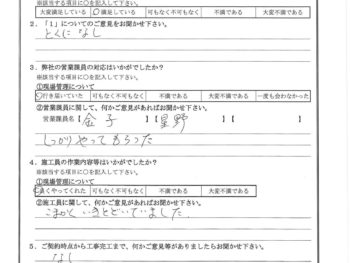 ※該当する項目に○を記入して下さい。
大変満足している ○満足している 可もなく不可もなく 不満である 大変不満である
2．「1」についてのご意見をお聞かせ下さい。
とくに なし
3．弊社の営業課員の対応はいかがでしたか？
※該当する項目に○を記入して下さい。
①現場管理について
行き届いていた 可もなく不可もなく 不満である 大変不満である 一度も会わなかった
②営業課員に関して、何かご意見があればお聞かせ下さい。
営業課員名【 金子 】【 星野
しっかりやってもらった
4．施工員の作業内容等はいかがでしたか？
①現場管理について
良くやってくれた 可もなく不可もなく 不満である 大変不満である
②施工員に関して、何かご意見があればお聞かせ下さい。
こまかく いきとどいていました.
5．ご契約時点から工事完工まで、何かご意見等がありましたらお聞かせ下さい。
なし